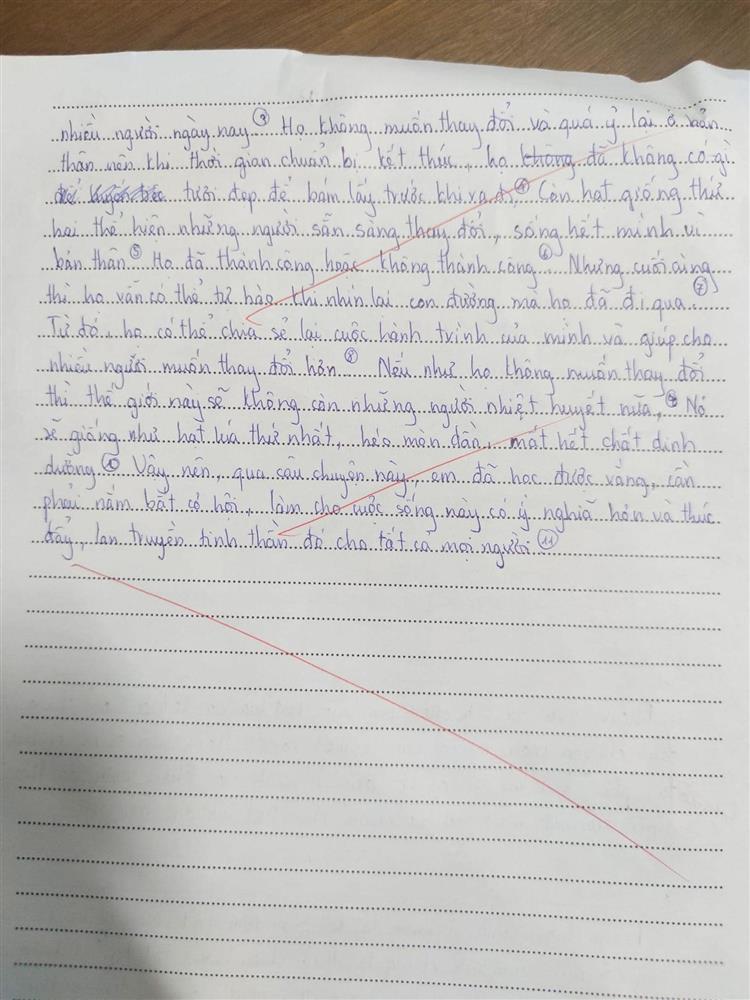 nhiều người ngày nay ③ Họ không muốn thay đổi và quá ỷ lại ở bản
thân nên khi thời gian chuẩn bị kết thúc, họ không đã không có gì
tươi đẹp để bám lấy trước khi ra đi ④ Còn hạt giống thứ
hai thể hiện những người sẵn sàng thay đổi, sống hết mình vì
bản thân ⑤ Họ đã thành công hoặc không thành công ⑥ Nhưng cuối cùng
thì họ vẫn có thể tự hào khi nhìn lại con đường mà họ đã đi qua ⑦
Từ đó, họ có thể chia sẻ lại cuộc hành trình của mình và giúp cho
nhiều người muốn thay đổi hơn ⑧ Nếu như họ không muốn thay đổi
thì thế giới này sẽ không còn những người nhiệt huyết nữa, ⑨ Nó
sẽ giống như hạt lúa thứ nhất, héo mòn dần, mất hết chất dinh
dưỡng ⑩ Vậy nên, qua câu chuyện này, em đã học được vằng, cần
phải nắm bắt cơ hội, làm cho cuộc sống này có ý nghĩa hơn và thúc
đẩy, lan truyền tinh thần đó cho tất cả mọi người ⑪